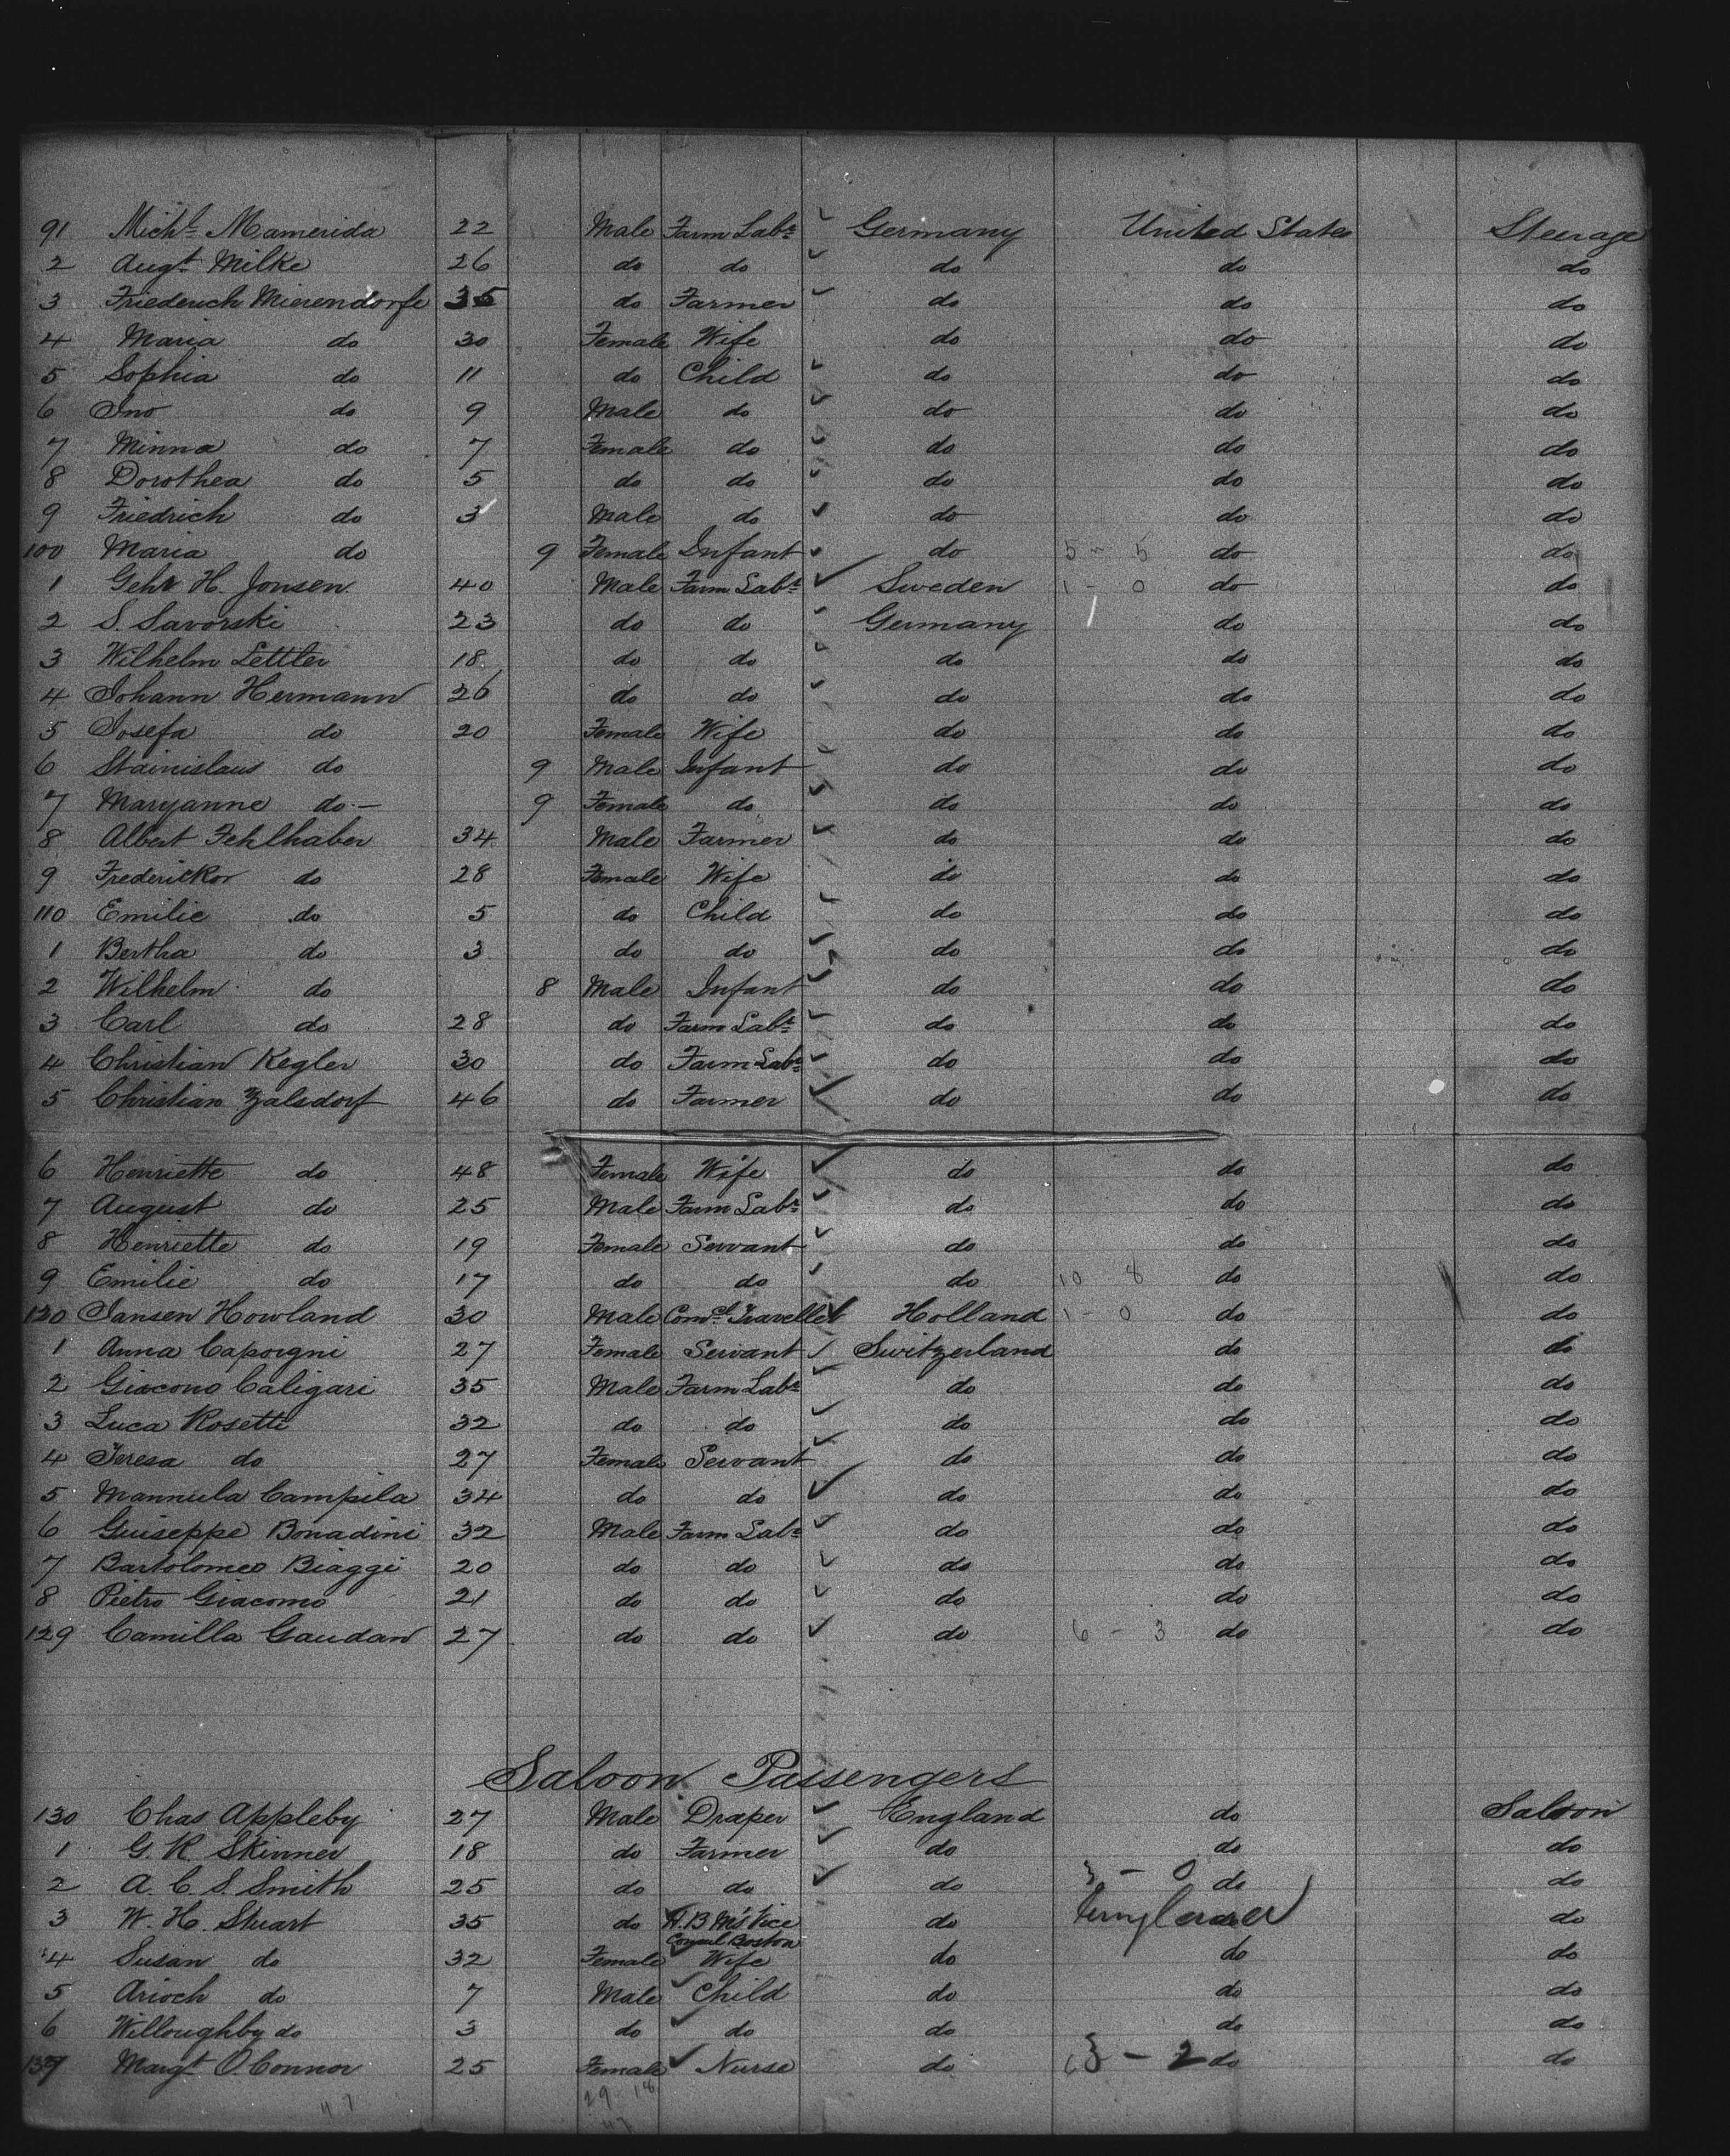 91 Michl Mamerida 22 Male Farm Labr Germany United States Steerage
2 Augt Milke 26 do do do do do
3 Friederich Mierendorfe 35 do Farmer do do do
4 Maria do 30 Female Wife do do do
5 Sophia do 11 do Child do do do
6 Ino do 9 Male do do do do
7 Minna do 7 Female do do do do
8 Dorothea do 5 do do do do do
9 Friedrich do 3 Male do do do do
100 Maria do 9 Female Infant do 5 - 5 do do
1 Gehr H. Jonsen 40 Male Farm Labr Sweden 1 - 0 do do
2 S. Savorski 23 do do Germany do do
3 Wilhelm Lettler 18 do do do do do
4 Johann Hermann 26 do do do do do
5 Josefa do 20 Female Wife do do do
6 Stainislaus do 9 Male Infant do do do
7 Maryanne do - 9 Female do do do do
8 Albert Fehlhaber 34 Male Farmer do do do
9 Frederickor do 28 Female Wife do do do
110 Emilie do 5 do Child do do do
1 Bertha do 3 do do do do do
2 Wilhelm do 8 Male Infant do do do
3 Carl do 28 do Farm Labr do do do
4 Christian Kegler 30 do Farm Labr do do do
5 Christian Zalsdorf 46 do Farmer do do do
6 Henriette do 48 Female Wife do do do
7 August do 25 Male Farm Labr do do do
8 Henriette do 19 Female Servant do do do
9 Emilie do 17 do do do 10 8 do do
120 Jansen Howland 30 Male Comcl Traveller Holland 1 - 0 do do
1 Anna Caporgni 27 Female Servant Switzerland do do
2 Giacono Caligari 35 Male Farm Labr do do do
3 Luca Rosetti 32 do do do do do
4 Teresa do 27 Female Servant do do do
5 Mannula Campila 34 do do do do do
6 Guiseppe Bonadini 32 Male Farm Labr do do do
7 Bartolomeo Biaggi 20 do do do do do
8 Pietro Giacomo 21 do do do do do
129 Camilla Gaudan 27 do do do 6 - 3 do do
Saloon Passengers
130 Chas Appleby 27 Male Draper England do Saloon
1 G. R. Skinner 18 do Farmer do do do
2 A. C. S. Smith 25 do do do 3 - 0 do do
3 W. H. Stuart 35 do H. B M's Vice Consul Boston do do
4 Susan do 32 Female Wife do do do
5 Arioch do 7 Male Child do do do
6 Willoughby do 3 do do do do do
137 Margt O'Connor 25 Female Nurse do 3 - 2 do do
47 29 18
47